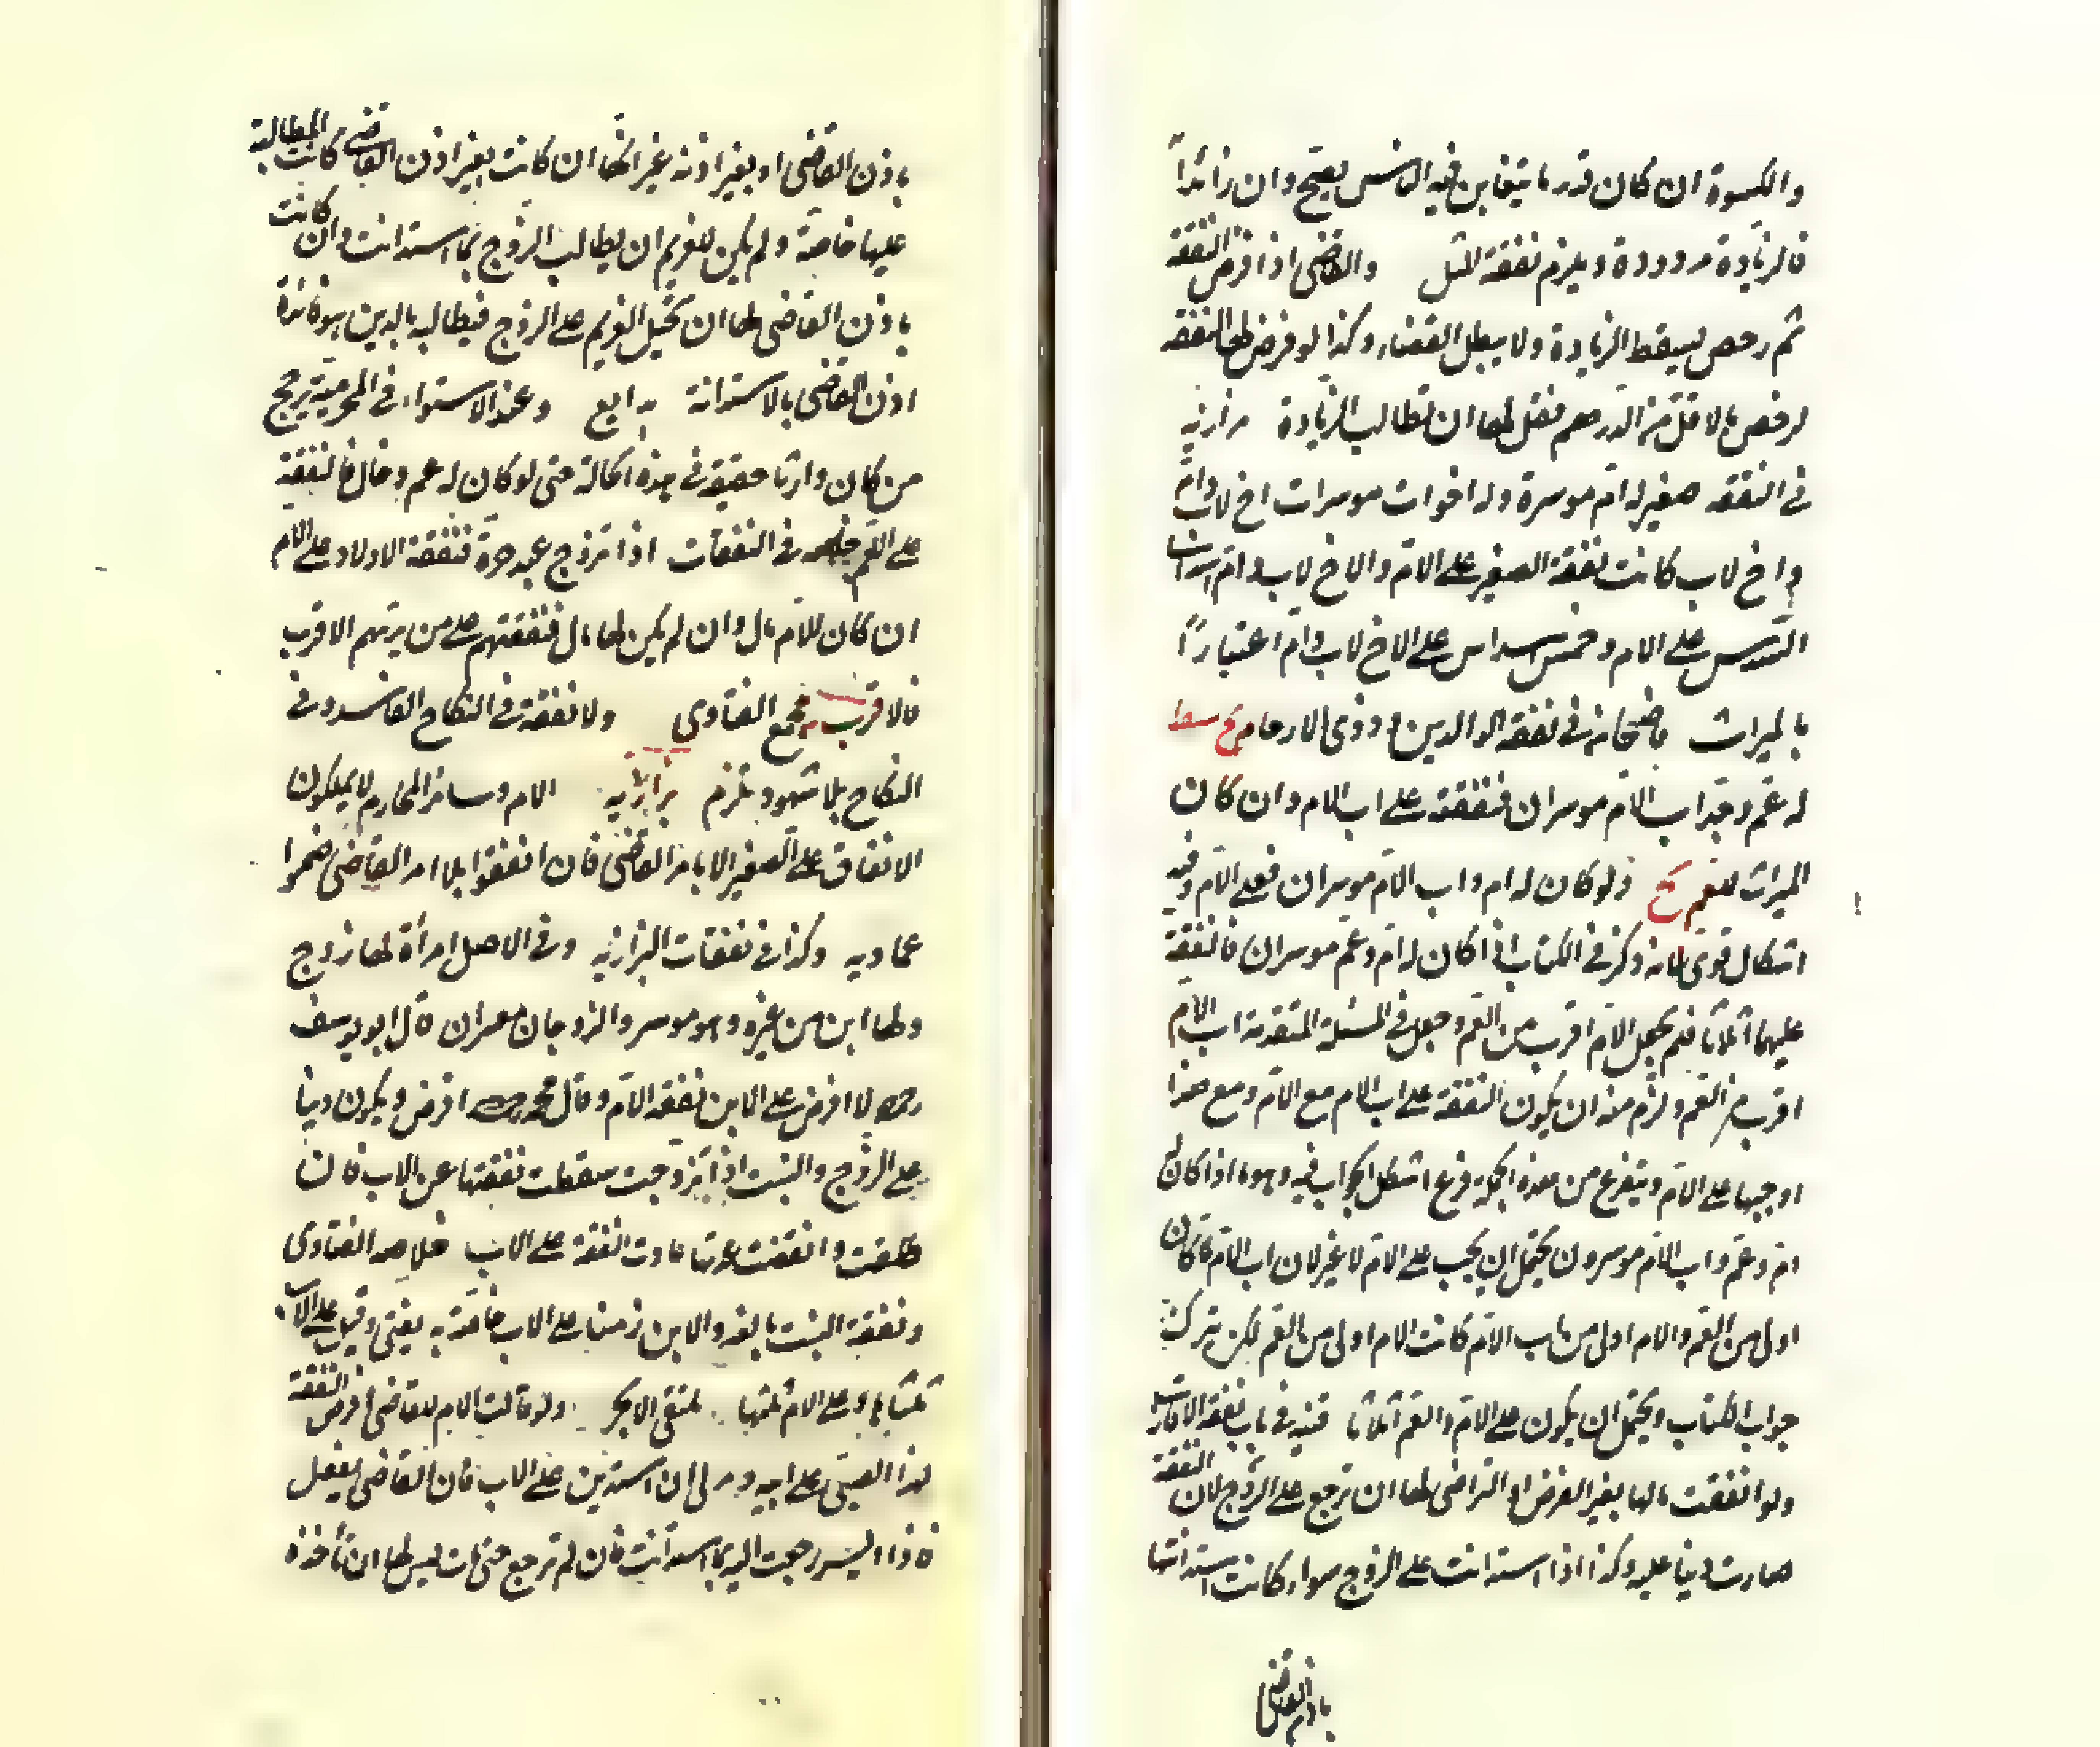 والكسوة ان كان قدر ما يتغابن فيه الناس يصح وان زائداً
فالزيادة مردودة ويلزم نفقة المثل والقاضى اذا فرض النفقة
ثم رخص يسقط الزيادة ولا يبطل القضاء وكذا لو فرض لها النفقة
لرخص بالاقل من الدرهم فغلى لها ان تطالب الزيادة بزازيه
فى النفقه صغير له ام موسرة وله اخوات موسرات اخ لاب وام
واخ لاب كانت نفقة الصغير على الام والاخ لاب وام اسداسا
السدس على الام وخمس اسداس على الاخ لاب وام اعتباراً
بالميراث قاضيخان فى نفقة الوالدين وذوى الارحام
له عم وجد اب الام موسران فنفقته على اب الام وان كان
الميراث للعم ولو كان له ام واب الام موسران فعلى الام وفيه
اشكال قوى لانه ذكر فى الكتاب اذا كان له ام وعم موسران فالنفقة
عليهما اثلاثا فلم يجعل الام اقرب من العم وجعل فى المسئلة المتقدمة اب الام
اقرب من العم ولزم منه ان يكون النفقة على اب الام مع الام ومع هذا
اوجبها على الام ويتفرع من هذه الجملة فرع اشكل الجواب فيه وهو اذا كان له
ام وعم واب الام موسرون يحتمل ان يجب على الام لا غير لان اب الام لما كان
اولى من العم والام اولى من اب الام كانت الام اولى من العم لكن يترك
جواب الكتاب ويحتمل ان يكون على الام والعم اثلاثا قنيه فى باب نفقة الاقارب
ولو انفقت مالها بغير الفرض او التراضى لها ان ترجع على الزوج لان النفقة
صارت دينا عليه وكذا اذا استدانت على الزوج سواء كانت استدانتها
باذن القاضى
باذن القاضى او بغير اذنه غير انها ان كانت بغير اذن القاضى كانت المطالبة
عليها خاصة ولم يكن للغريم ان يطالب الزوج بما استدانت وان كانت
باذن القاضى لها ان تحيل الغريم على الزوج فيطالبه بالدين هو فائدة
اذن القاضى بالاستدانة بدايع وعند الاستواء فى المحرمية يرجح
من كان وارثا حقيقة فى هذه الحالة حتى لو كان له عم وخال فالنفقة
على العم خلاصه فى النفقات اذا تزوج عبد حرة فنفقة الاولاد على الام
ان كان للام مال وان لم يكن لها مال فنفقتهم على من يرثهم الاقرب
فالاقرب مجمع الفتاوى ولا نفقة فى النكاح الفاسد وفى
النكاح بلا شهود يلزم بزازيه الام وسائر المحارم لا يملكون
الانفاق على الصغير الا بامر القاضى فان انفقوا بلا امر القاضى ضمنوا
عماديه وكذا فى نفقات البزازيه وفى الاصل امرأة لها زوج
ولها ابن من غيره وهو موسر والزوجان معسران قال ابو يوسف
رحمه لا افرض على الابن نفقة الام وقال محمد رحمه افرض ويكون دينا
على الزوج والبنت اذا تزوجت سقطت نفقتها عن الاب فان
طلقت وانقضت عدتها عادت النفقة على الاب خلاصه الفتاوى
ونفقة البنت بالغة والابن زمنا على الاب خاصة به يفتى وقيل على الاب
ثلثاها وعلى الام ثلثها ملتقى الابحر ولو قالت الام للقاضى افرض النفقة
لهذا الصبى على ابيه ومر لى ان استدين على الاب فان القاضى يفعل
فاذا ايسر رجعت اليه بما استدانت فان لم ترجع حتى مات ليس لها ان تأخذه